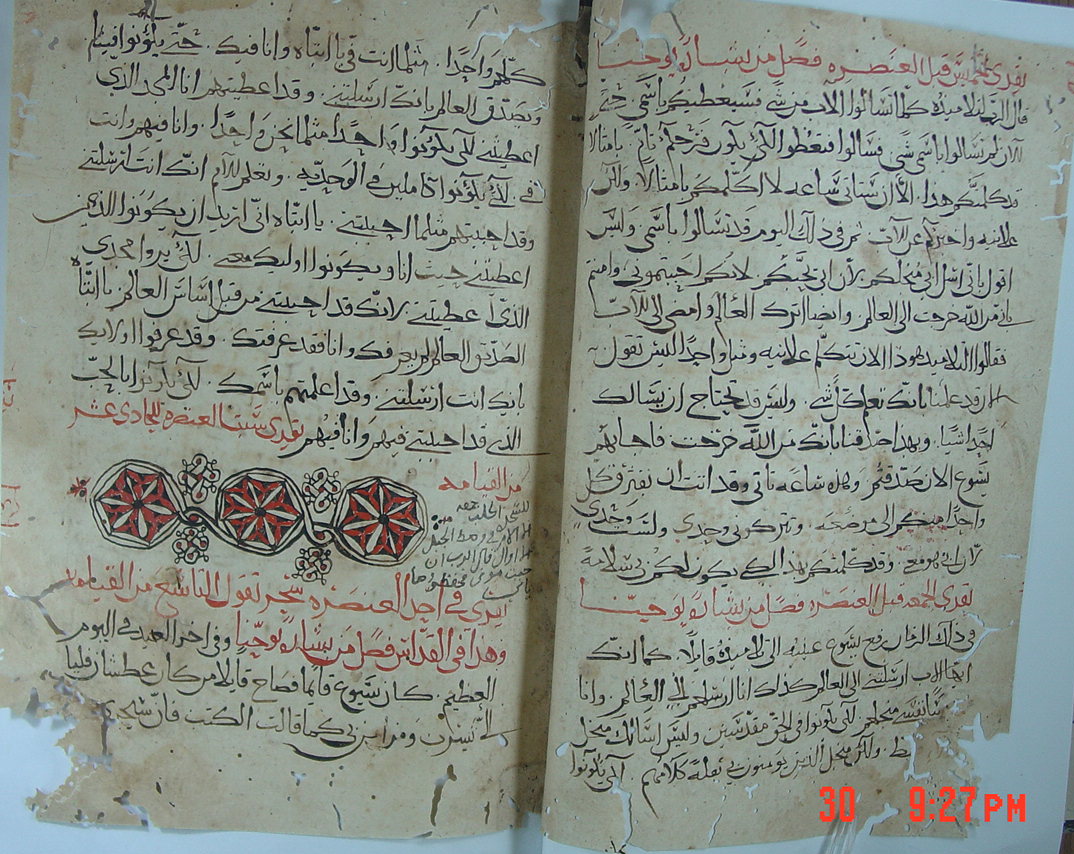 تقرى الخميس قبل العنصره فصل من بشاره يوحنا
قال الرب لتلاميذه كلما تسالوا الاب من شي فسيعطيكم باسمي حتي
الان لم تسالوا باسمي شي فسالوا فتعطوا لكي يكون فرحكم تام بامثالا
قد كلمتكم هذا الا ان ستاتي ساعه لا اكلمكم بامثالا ولكن
علانيه واخبركم عن الاب ثم في ذلك اليوم قد تسالوا باسمي وليس
اقول باني اسل ابي منجلكم لان ابي يحبكم لانكم احببتموني وامنتم
باني من الله خرجت الى العالم وايضا اترك العالم وامضي الى الاب
فقالوا التلاميذ هوذا الان تتكلم علانيه ومثل واحدا ليس تقول
الان قد علمنا بانك تعلم كل شي وليس قد تحتاج ان يسالك
احدا شيا وبهذا صدقنا بانك من الله خرجت فاجابهم
يسوع الان صدقتم وهذه ساعه تاتي وقد اتت ان يفترق كل
واحدا منكم الى موضعه وتتركوني وحدي ولست وحدي
لان ابي هو معي وقد كلمتكم بهذا لكي يكون لكم بي سلامة
تقرى الجمعه قبل العنصره فصل من بشاره يوحنا
في ذلك الزمان رفع يسوع عينيه الى تلاميذه قايلا كما انك
ايها الاب ارسلتني الى العالم كذلك انا ارسلهم الى العالم وانا
اقدس نفسي منجلهم لكي يكونوا في الحق مقدسين وليس اسالك منجل
فقط ولكن منجل الذين يومنون بي بقلة كلامهم لكي يكونوا
كلهم واحدا مثلما انت في يا ابتاه وانا فيك حتي يكونوا فينا
ويصدق العالم بانك ارسلتني وقد اعطيتهم انا المجد الذي
اعطيتني لكي يكونوا واحدا مثلما نحن واحدا وانا فيهم وانت
في لكي يكونوا كاملين في الوحديه ويعلم العالم انك انت ارسلتني
وقد احببتهم مثلما احببتني يا ابتاه اني اريد ان يكونوا الذين
اعطيتني حيث انا ويكونوا اوليك معي لكي يروا مجدي
الذي اعطيتني لانك قد احببتني من قبل اساس العالم يا ابتاه
الصديق العالم لم يعرفك وانا فقد عرفتك وقد عرفوا اولايك
بانك انت ارسلتني وقد اعلمتهم باسمك لكي يكونوا بالحب
الذي قد احببتني فيهم وانا فيهم تقرى سبت العنصره للحادي عشر
من القيامه
يقرى في احد العنصره سحر تقول التاسع من القيامه
وهذا في القداس فصل من بشاره يوحنا وفي اخر العيد في اليوم
العظيم كان يسوع قايما فصاح قايلا من كان عطشان فليا
الي يشرب ومن امن بي كما قالت الكتب فان ستجري
30 9:27PM